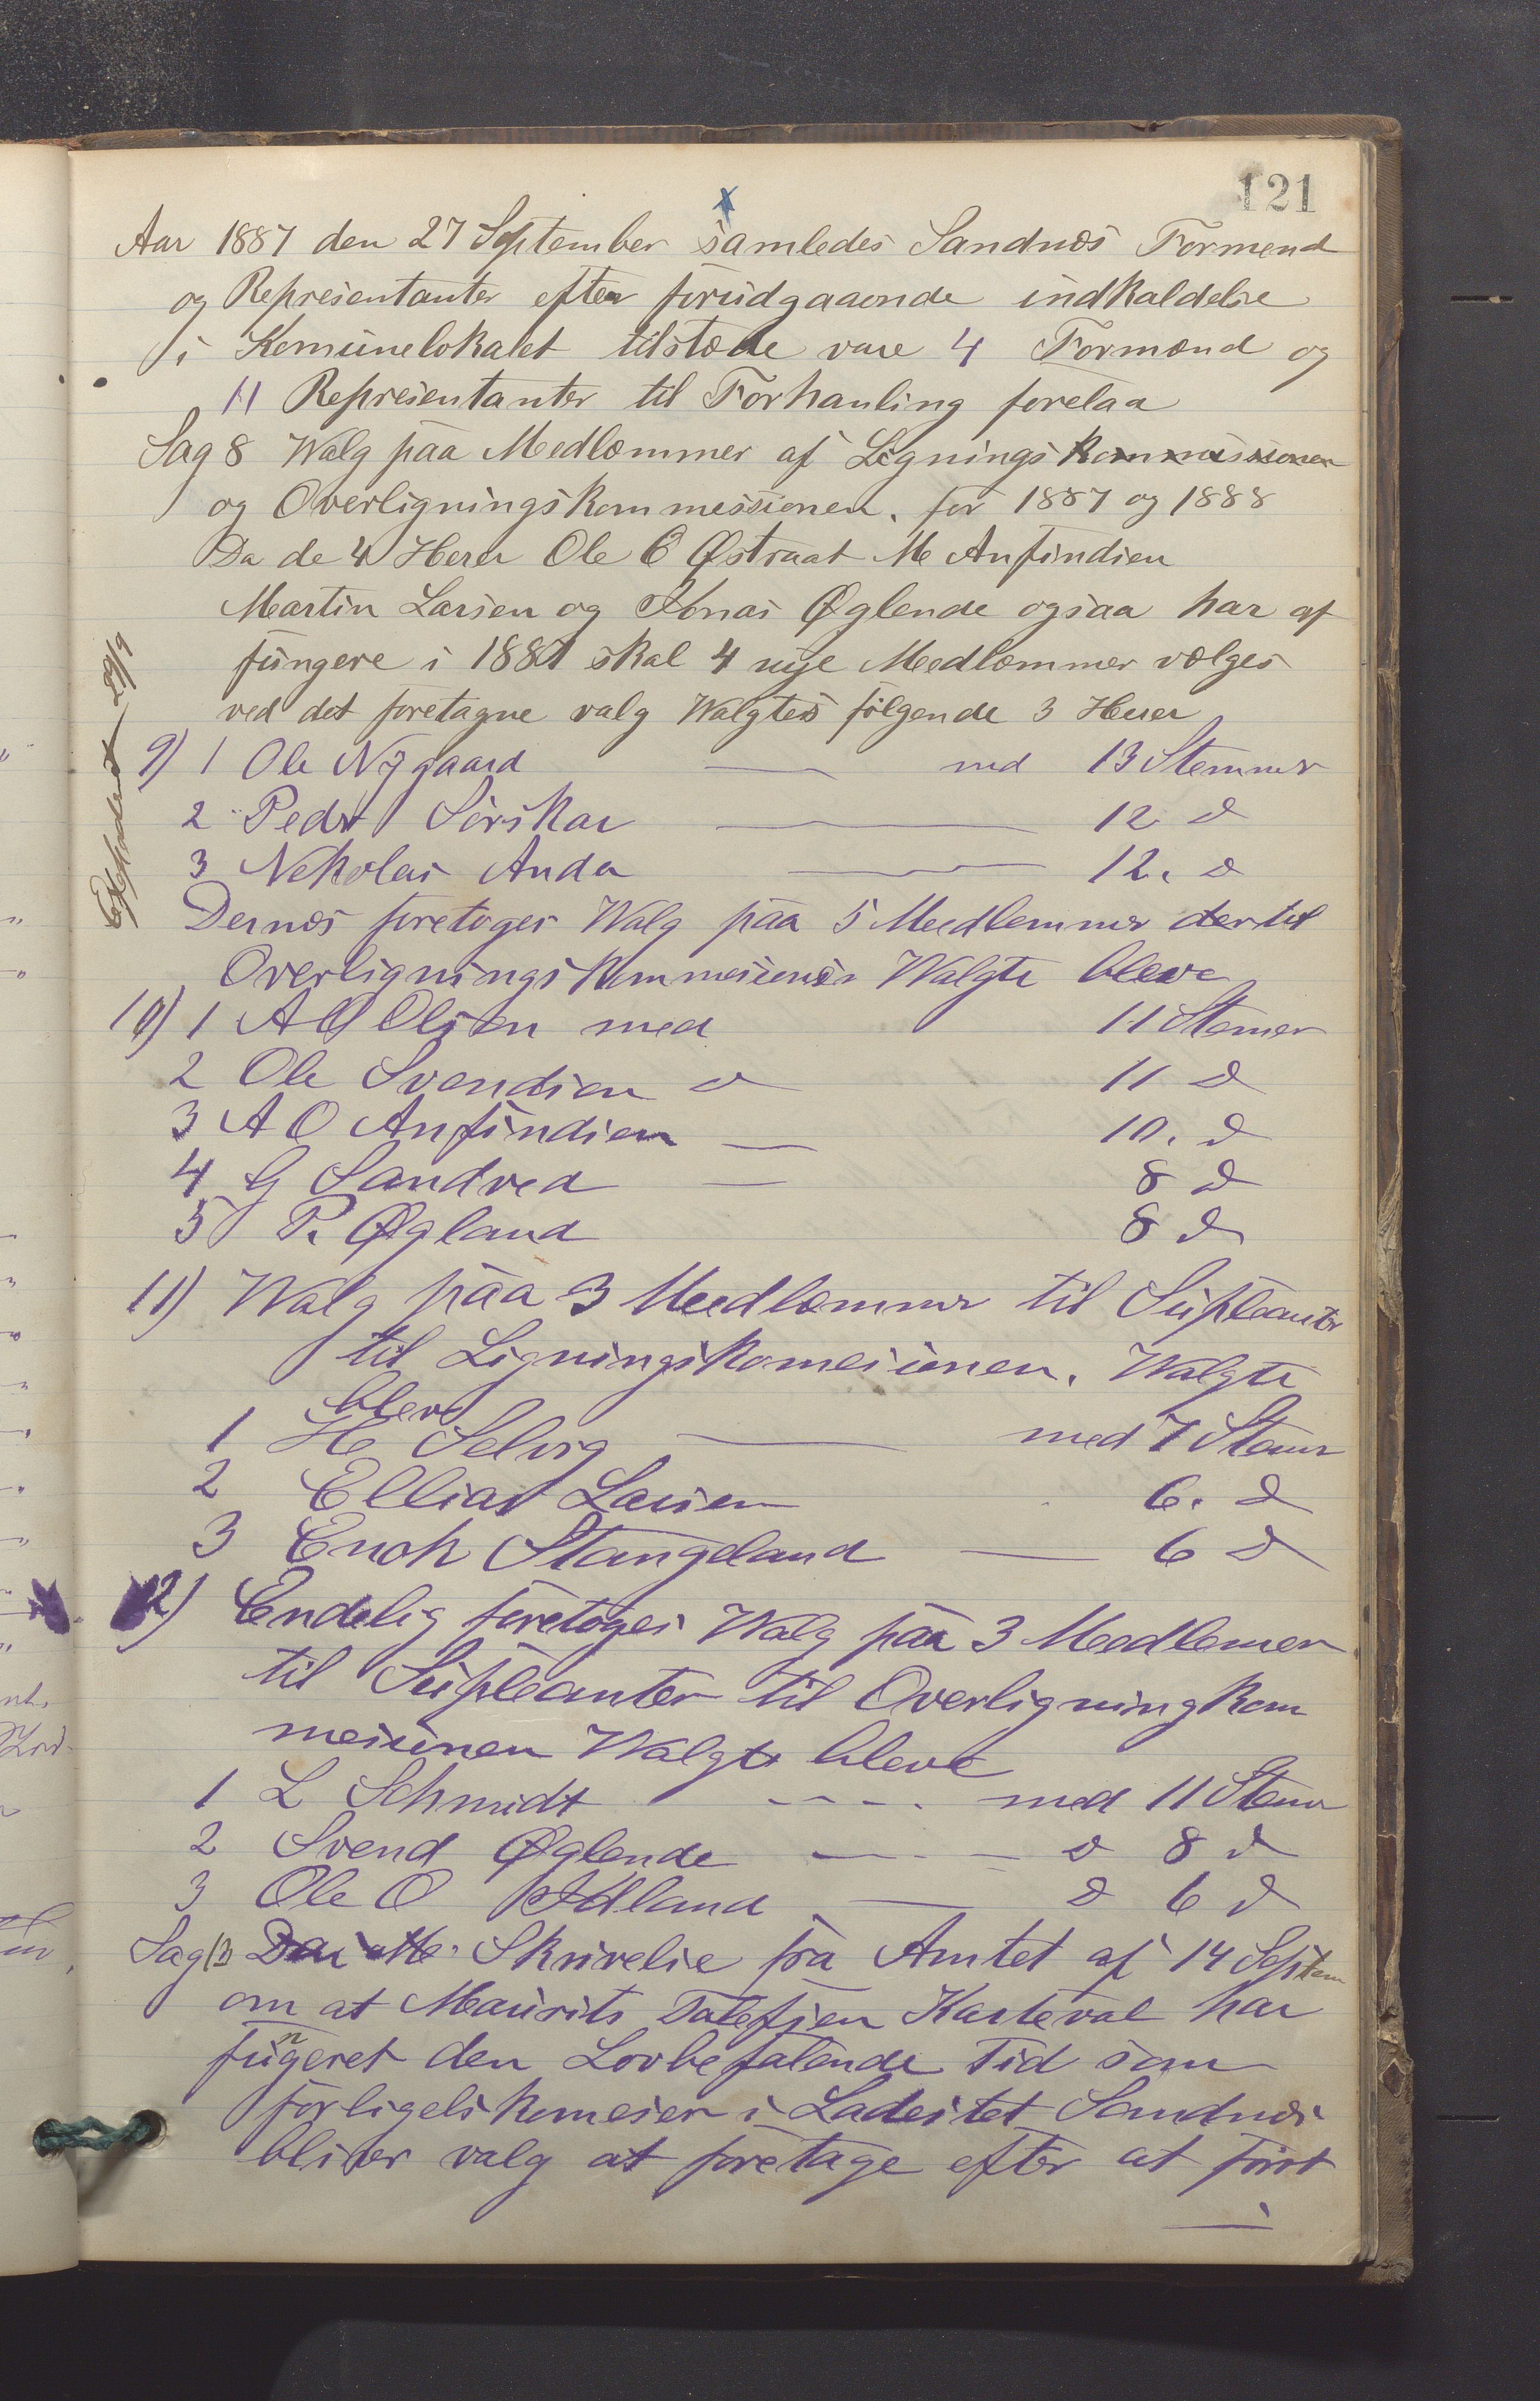 121
Aar 1887 den 27 September samledes Sandnæs Formend
og Represientanter efter forudgaaende indkaldelse
i Komunelokalet tilstæde vare 4 Formænd og
11 Represientanter til Forhanling forelaa
Sag 8 Walg paa Medlæmmer af Lignings kommissionen
og Overlignings kommessionen. for 1887 og 1888
Da de 4 Herer Ole O Østraat M Anfindsen
Martin Larsen og Jonas Øglende ogsaa har af
fungere i 1887 skal 4 nye Medlæmmer vælges
ved det foretagne valg Walgtes følgende 3 Herer
Expederet 29/9
9) 1 Ole Nygaard med 13 Stemmer
2 Peder Sørskar 12 d
3 Nekolas Anda 12. d
Dernæs foretoges Walg paa 5 Medlemmer dertil
Overlignings kommesionen Walgte bleve
10) 1 A O Olsen med 11 Stemer
2 Ole Svendsen d 11 d
3 A O Anfindsen 10. d
4 G Sandved 8 d
5 P. Øgland 8 d
11) Walg paa 3 Medlæmmer til Supleanter
til Ligningskomesionen. Walgte
bleve
1 H Selvig med 7 Stemr
2 Ellias Larsen 6. d
3 Enok Stangeland 6 d
12) Endelig foretoges Walg paa 3 Medlemer
til Supleanter til Overligningkom
mesionen Walgt bleve
1 L Schmidt med 11 Stemr
2 Svend Øglende d 8 d
3 Ole O Idland d 6 d
Sag 13 Skrivelse fra Amtet af 14 Septem
om at Maurits Tolefsen Kartevol har
fungeret den Lovbefalende Tid som
forligelskomeser i Ladestet Sandnæs
bliver valg at foretage efter at först